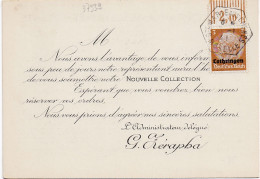 M
Nous avons l'avantage de vous inform
sous peu de jours notre représentant aura l'ho
de vous soumettre notre NOUVELLE COLLECTION
Espérant que vous voudrez bien nous
réserver vos ordres.
Nous vous prions d'agréer nos sincères salutations
L'Administrateur délégué
G. Kérapha
Lothringen
Deutsches Reich